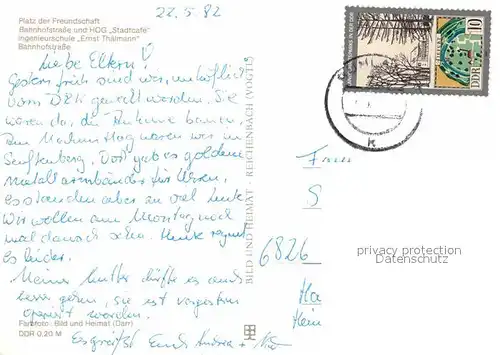 22.5.82
Platz der Freundschaft
Bahnhofstraße und HOG „Stadtcafé“
Ingenieurschule „Ernst Thälmann“
Bahnhofstraße
Liebe Eltern!
Gestern früh sind wir unverhofft
vom geweckt worden. Sie
waren da, die Antenne bauen.
Am Nachmittag waren wir in
Senftenberg. Dort gab es goldene
Metallarmbänder für Uhren,
es standen aber zu viel Leute.
Wir wollen am Montag noch
mal danach sehn. Heute regnet
es leider.
Meiner Mutter dürfte es auch
besser gehn, sie ist vorgestern
operiert worden.
Es grüßt Euch Andrea +
Farbfoto: Bild und Heimat (Darr)
DDR 0,20 M
BILD UND HEIMAT · REICHENBACH (VOGTL)
DDR 10
k
Fam
S
6826
privacy protection
Datenschutz